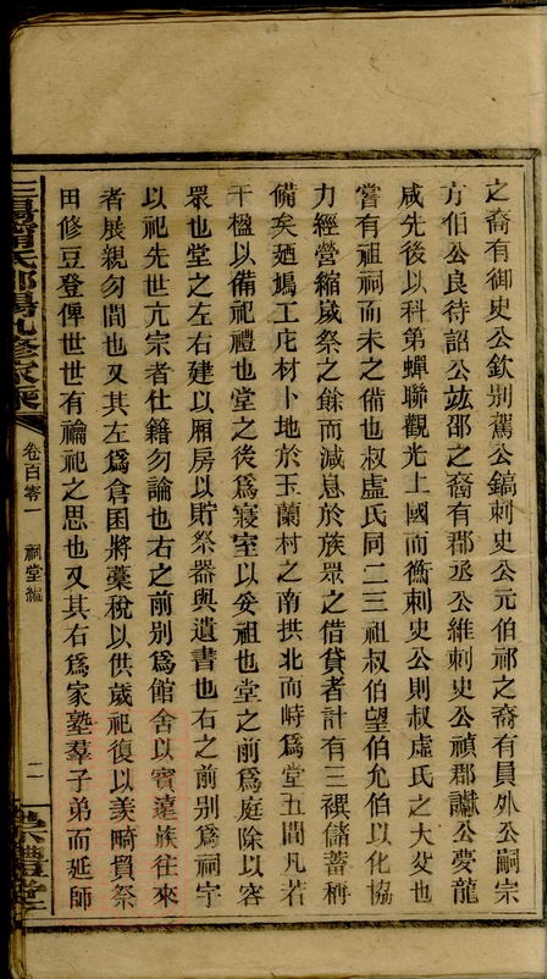 之裔有御史公欽别駕公鎬刺史公元伯祁之裔有員外公嗣宗
方伯公良待詔公竑邵之裔有郡丞公維刺史公禎郡讞公夢龍
咸先後以科第蟬聯觀光上國而衡刺史公則叔虛氏之大父也
嘗有祖祠而未之備也叔虛氏同二三祖叔伯望伯允伯以化協
力經營縮歲祭之餘而減息於族眾之借貸者計有三禩儲蓄稱
備矣廼鳩工庀材卜地於玉蘭村之南拱北而峙為堂五間凡若
干楹以備祀禮也堂之後為寢室以妥祖也堂之前為庭除以容
眾也堂之左右建以廂房以貯祭器與遺書也右之前别為祠宇
以祀先世亢宗者仕籍勿論也右之前别為館舍以賓遠族往來
者展親勿間也又其左為倉囷將藁稅以供歲祀復以羨畸貿祭
田修豆登俾世世有禴祀之思也又其右為家塾羣子弟而延師
卷百零一 祠堂編 二